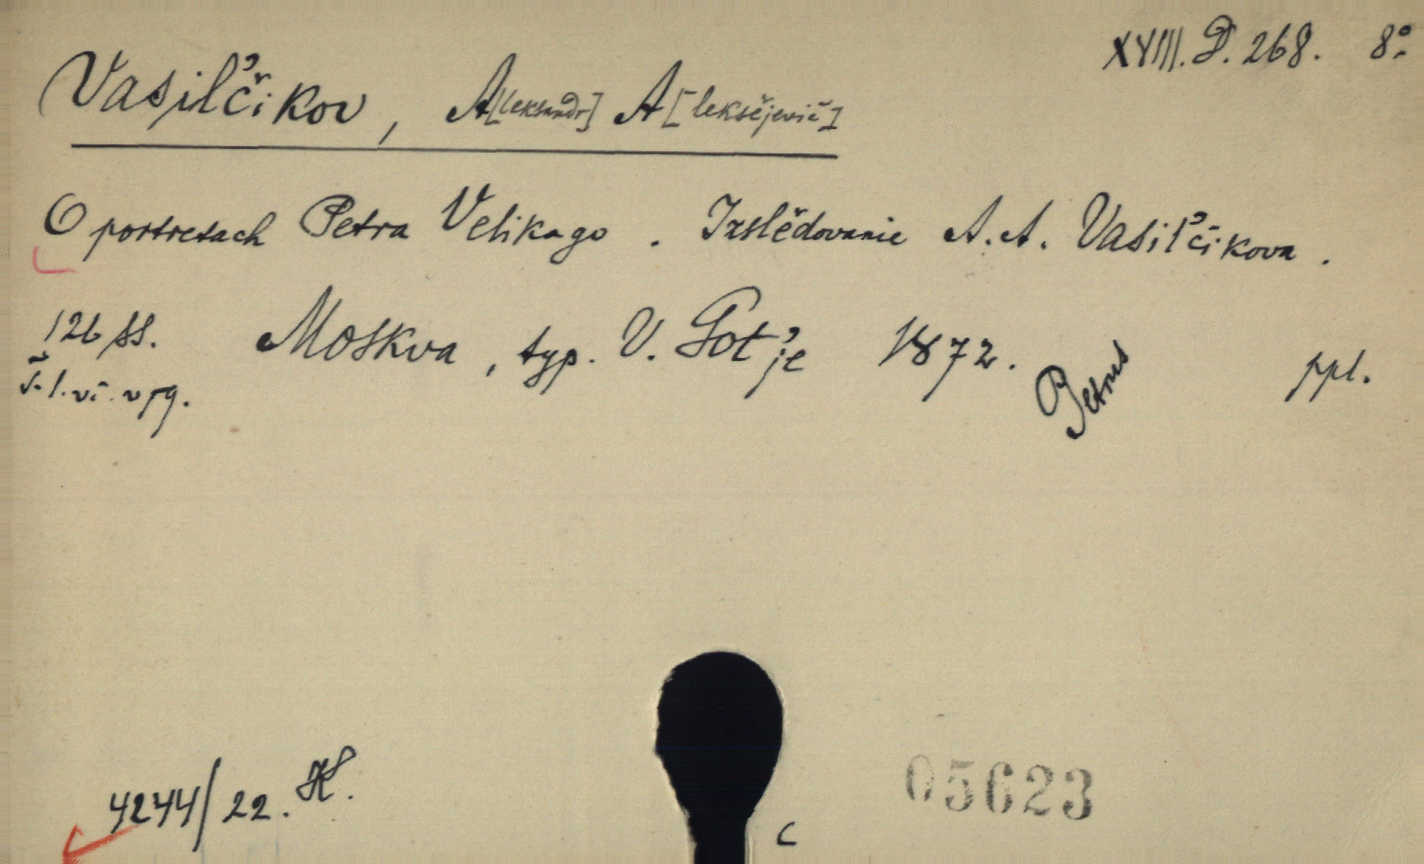 XVIII. D. 268. 8°.
Vasil'čikov, A[leksandr] A[leksějevič]
O portretach Petra Velikago. Izslědovanie A. A. Vasil'čikova.
126 ss. Moskva, typ. V. Got'je 1872. Petrus ppl.
4244/22. H.
05623
c